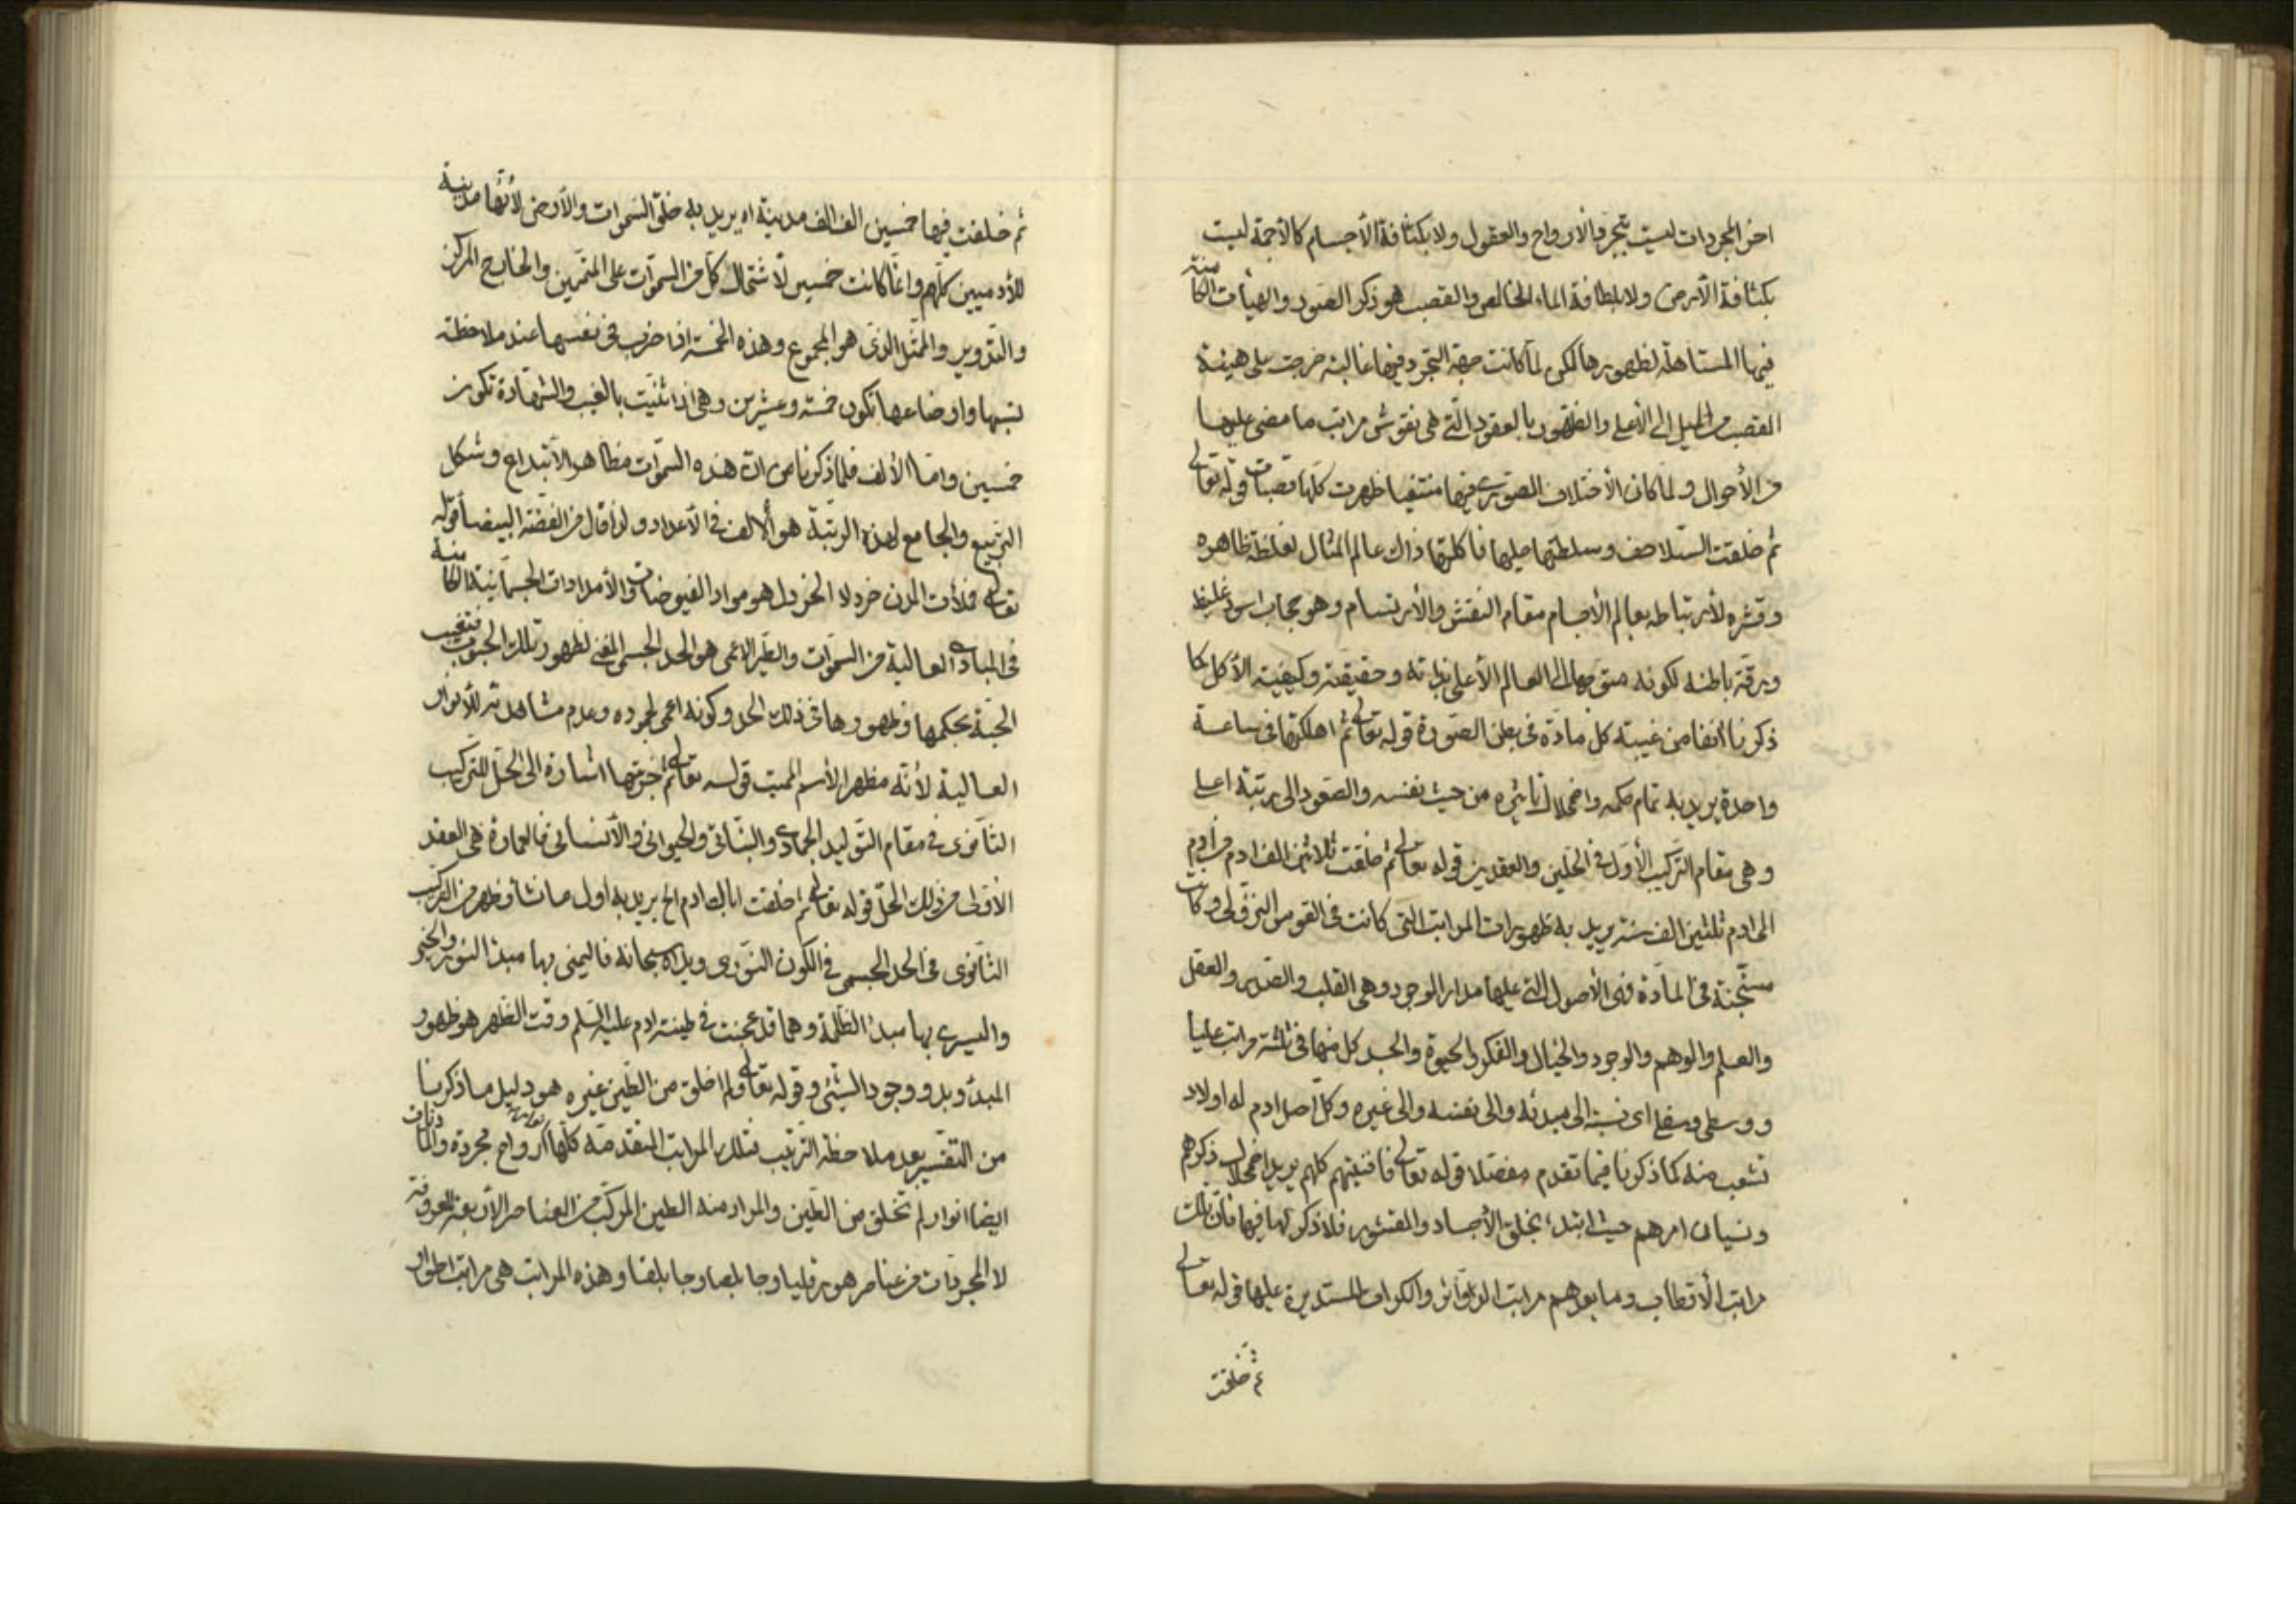 اخر المجردات ليست بتجرد الأرواح والعقول ولا بكثافة الأجسام كالأجمة ليست
بكثافة الأرض ولا بلطافة الماء الخالص والقصب هو ذكر الصور والهيأت الكامنة
فيها المستاهلة لظهورها لكن لما كانت جهة التجرد فيها غالبة خرجت على هيئة
القصب من الميل إلى الأعلى والظهور بالعقود التي هى نقوش مراتب ما مضى عليها
من الأحوال ولما كان الأختلاف الصورى فيها منتفيا ظهرت كلها قصبات قوله تعالى
ثم خلقت السلاحف وسلطتها عليها فاكلتها ذاك عالم المثال لغلظة ظاهره
وقشره لأرتباطه بعالم الأجسام مقام النقش والأرتسام وهو حجاب اسود غليظ
ورقة باطنه لكونه متوجها الى العالم الأعلى بذاته وحقيقته وكيفية الأكل كما
ذكرنا انفا من غيبته كل مادة فى بطن الصورة قوله تعالى ثم اهلكتها فى ساعة
واحدة يريد به تمام حكمه واضمحلال تاثيره من حيث نفسه والصعود الى رتبة اعلى
وهى مقام التركيب الأول فى الحلين والعقدين قوله تعالى ثم خلقت ثلاثين الف ادم من ادم
الى ادم ثلثين الف سنة يريد به ظهورات المراتب التى كانت فى القوس النزولى وكانت
مستجنة فى المادة فهى الأصول التى عليها مدار الوجود وهى القلب والصدر والعقل
والعلم والوهم والوجود والخيال والفكر والحيوة والجسد كل منها فى ثلثة مراتب عليا
ووسطى وسفلى اى نسبته الى مبدئه والى نفسه والى غيره وكل اصل ادم له اولاد
تشعب منه كما ذكرنا فيما تقدم مفصلا قوله تعالى فافنيتهم كلهم يريد اضمحلال ذكرهم
ونسيان امرهم حيث ابتدء بخلق الأجساد والقشور فلا ذكر لها فيها فان تلك
مراتب الأقطاب وما بعدهم مراتب الدوائر والكرات المستديرة عليها قوله تعالى
ثم خلقت
ثم خلقت فيها خمسين الف الف مدينة اه يريد به خلق السموات والأرض لأنها مدينة
للأدميين كلهم وانما كانت خمسين لأشتمال كل من السموات على المتممين والخارج المركز
والتدوير والممثل الذى هو المجموع وهذه الخمسة اذا ضرب فى نفسها عند ملاحظة
نسبها واوضاعها تكون خمسة وعشرين وهى اذا ثنيت بالغيب والشهادة تكون
خمسين واما الألف فلما ذكرنا من ان هذه السموات مظاهر الأبتداع وشكل
التربيع والجامع لهذه الرتبة هو الألف فى الأعداد ولذا قال من الفضة البيضا قوله
تعالى فملأت المدن خردلا الخردل هو مواد الفيوضات والأمدادات الجسمانية الكامنة
فى المبادى العالية من السموات والطير الاعمى هو الحد الجسمى المفنى لظهور تلك الحبوب فتغيب
الحبة بحكمها وظهورها فى ذلك الحد وكونه اعمى لجموده وعدم مشاهدته للأنوار
العالية لأنه مظهر الأسم المميت قوله تعالى ثم خربتها اشارة الى الحل للتركيب
الثانوى فى مقام التوليد الجمادى والنباتى والحيوانى والأنسانى فالعمارة هى العقد
الأول من ذلك الحل قوله تعالى ثم اخلقت اباك ادم الخ يريد به اول ما نشأ وظهر من التركيب
الثانوى فى الحد الجسمى فى الكون النورى ويداه سبحانه فاليمنى بها مبدء النور والخير
واليسرى بها مبدء الظلمة وهما قد عجنت فى طينة ادم عليه السلم وقت الظهر هو ظهور
المبدء وبدو وجود الشيئ وقوله تعالى ولم اخلق من الطين غيره هو دليل ما ذكرنا
من التفسير بعد ملاحظة الترتيب فتلك المراتب المتقدمة كلها ارواح مجردة والماديات
ايضا انوار لم تخلق من الطين والمراد منه الطين المركب من العناصر الأربعة المعروفة
لا المجردات من عناصر هورقليا وجابلصا وجابلقا وهذه المراتب هى مراتب اطوار